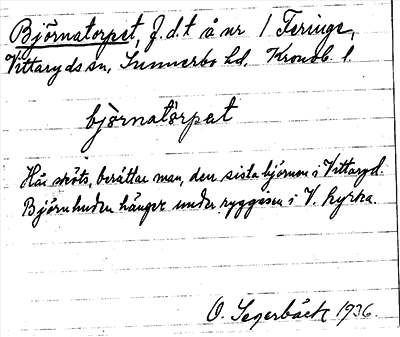 Björnatorpet, f.d.t å nr 1 Feringe,
Vittaryds sn, Sunnerbo hd, Kronob. l.
björnatòrpat
Här sköts, berättar man, den sista björnen i Vittaryd.
Björnhuden hänger under ryggåsen i V. kyrka.
O. Segerbäck 1936.